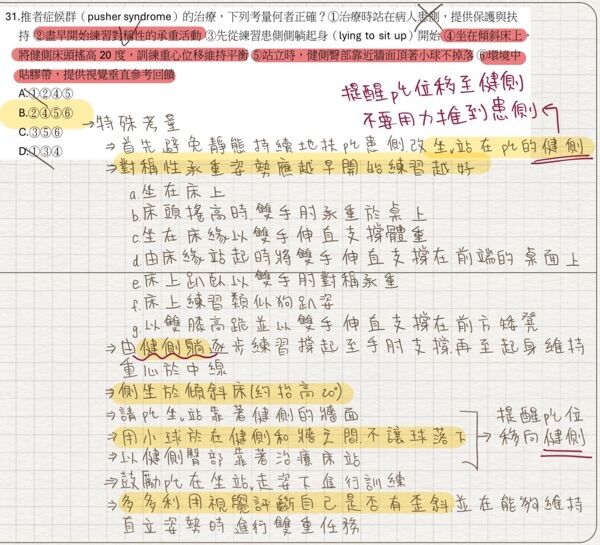 31.推者症候群（pusher syndrome）的治療，下列考量何者正確？①治療時站在病人患側，提供保護與扶
持 ②盡早開始練習對稱性的承重活動 ③先從練習患側側躺起身（lying to sit up）開始 ④坐在傾斜床上，
將健側床頭搖高 20 度，訓練重心位移維持平衡 ⑤站立時，健側臀部靠近牆面頂著小球不掉落 ⑥環境中
貼膠帶，提供視覺垂直參考回饋
A.①②④⑤
B.②④⑤⑥
C.③⑤⑥
D.①③④
提醒pt位移至健側
不要用力推到患側
→特殊考量
→首先避免靜態持續地扶pt患側改坐、站在pt的健側
→對稱性承重姿勢應越早開始練習越好
a.坐在床上
b.床頭搖高時,雙手肘承重於桌上
c.坐在床緣以雙手伸直支撐體重
d.由床緣站起時將雙手伸直支撐在前端的桌面上
e.床上趴臥以雙手肘對稱承重
f.床上練習類似狗趴姿
g.以雙膝高跪並以雙手伸直支撐在前方矮凳
→由健側躺逐步練習撐起至手肘支撐再至起身維持
重心於中線
→側坐於傾斜床(約抬高20°)
→請pt坐、站靠著健側的牆面
→用小球於在健側和牆之間,不讓球落下
→以健側臀部靠著治療床站
→鼓勵pt在坐、站、走姿下進行訓練
→多多利用視覺評斷自己是否有歪斜並在能夠維持
直立姿勢時進行雙重任務
提醒pt位
→移向健側